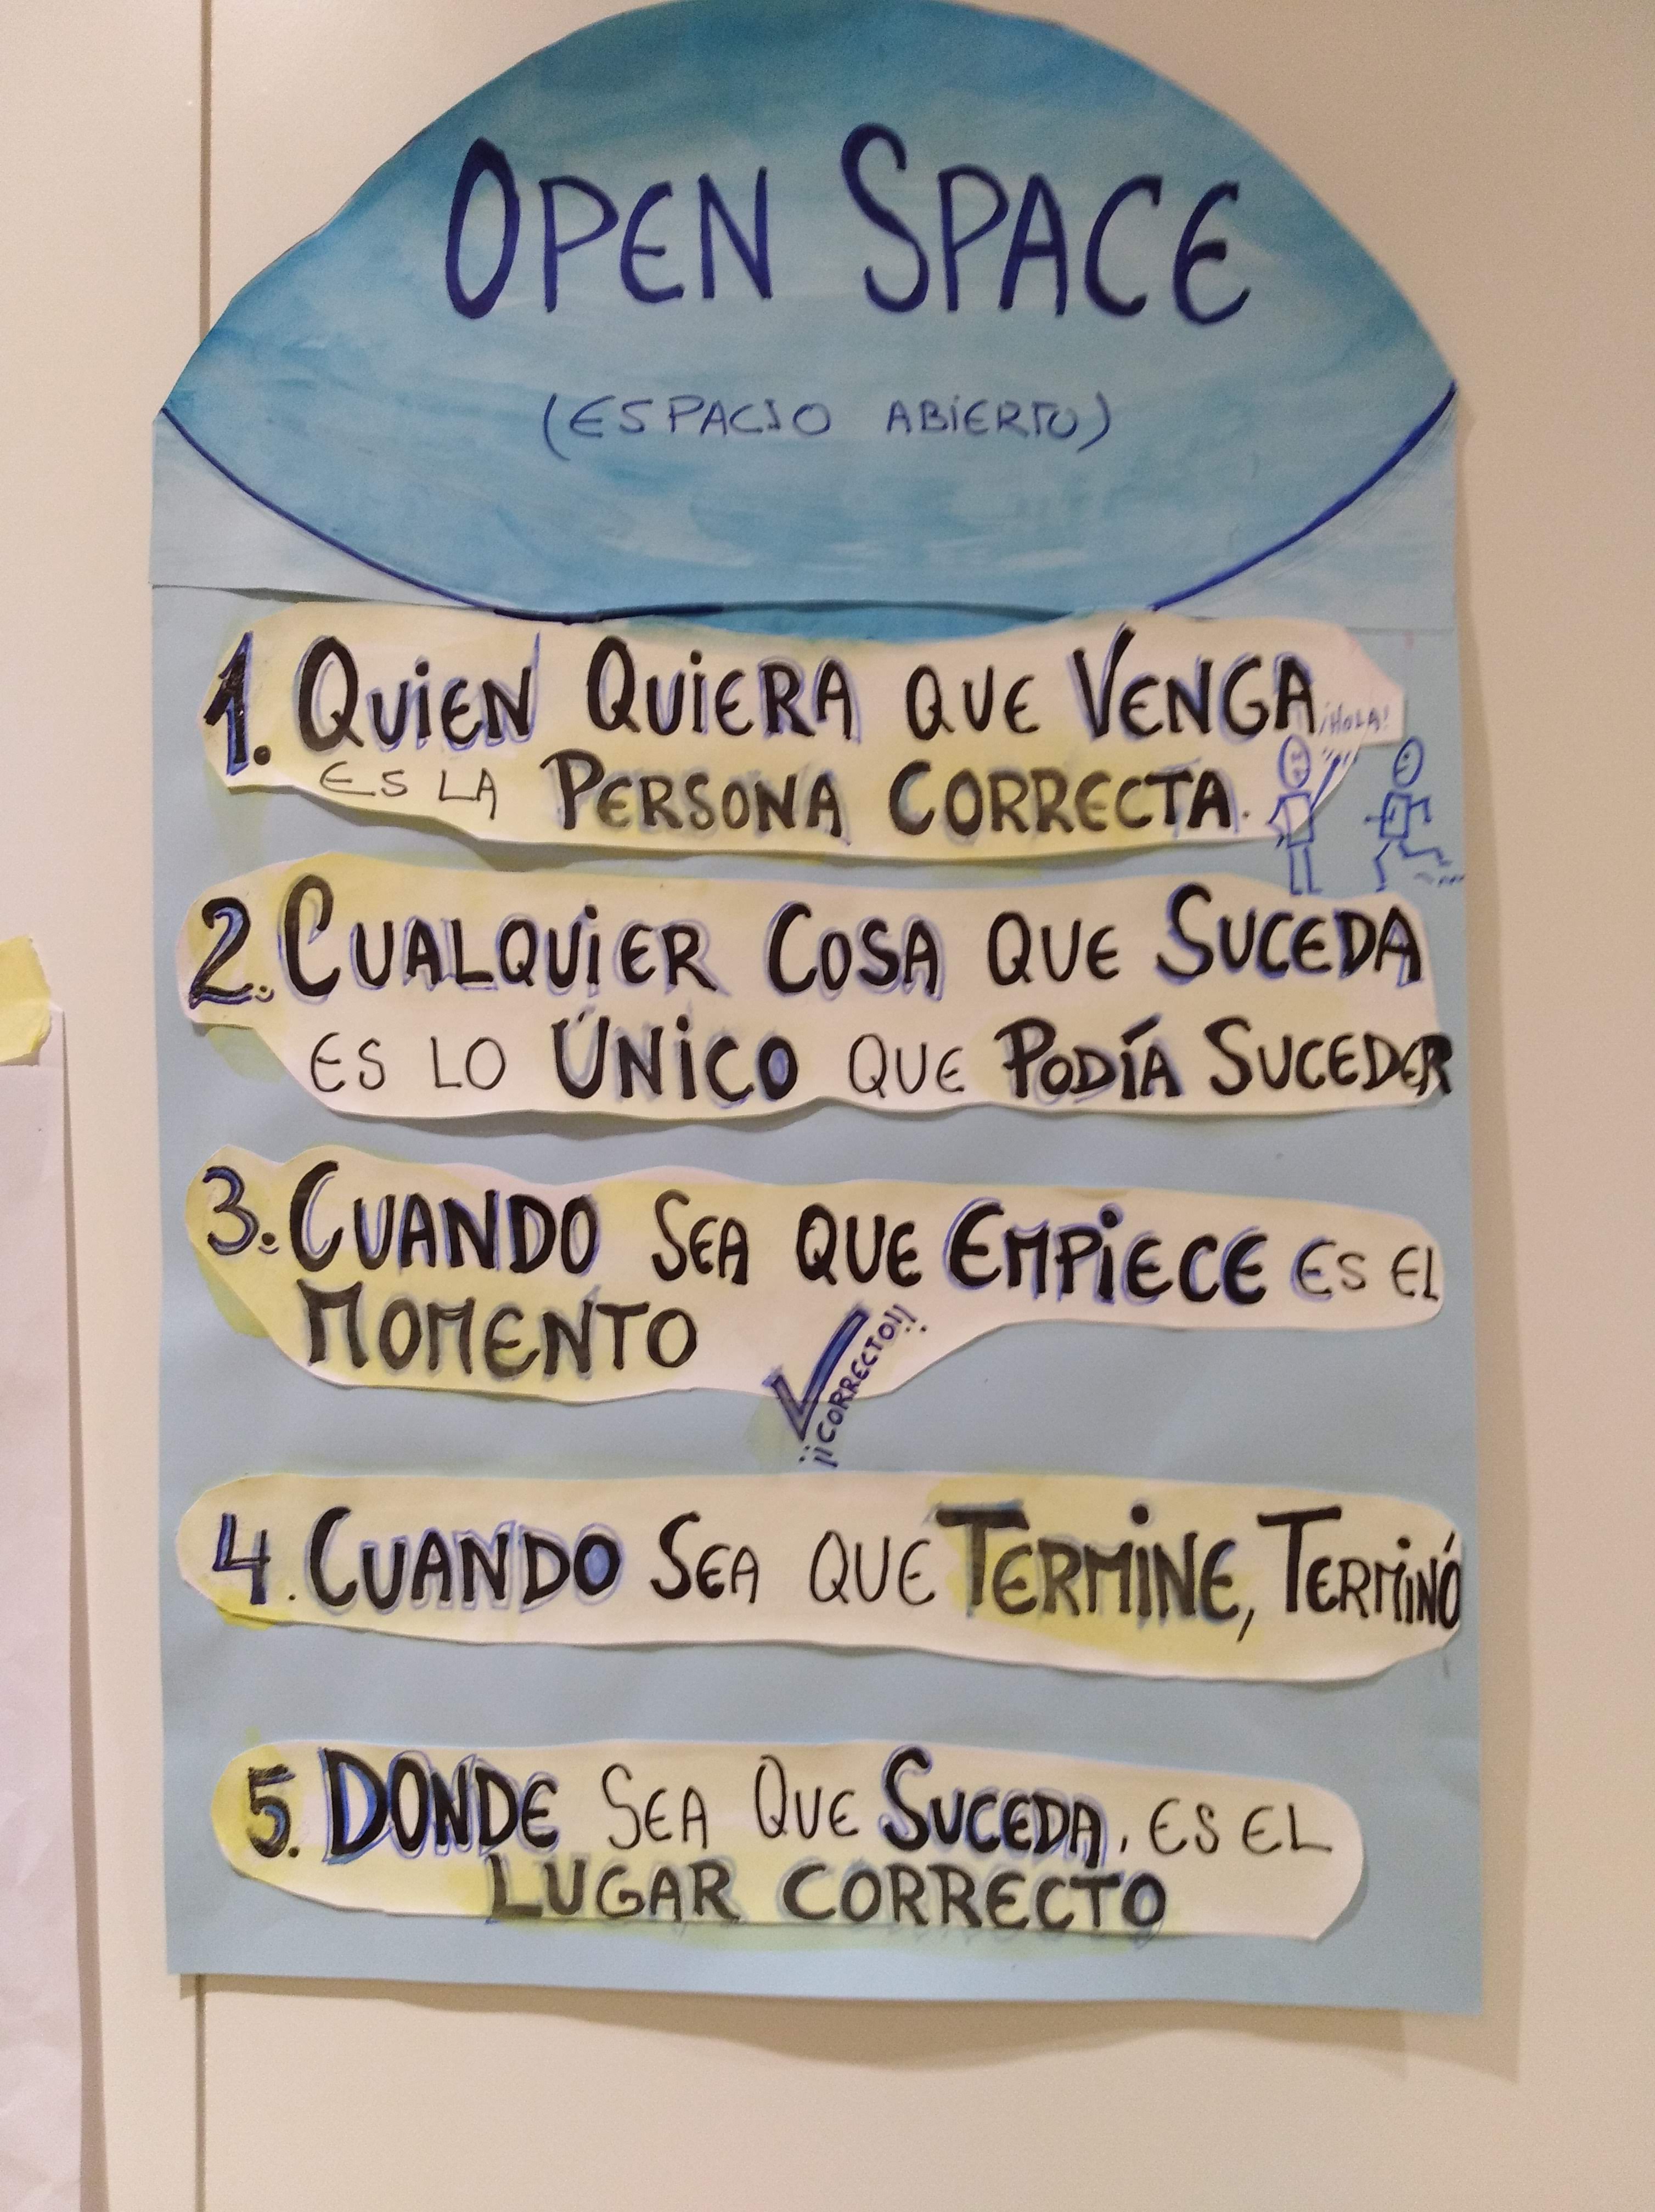 OPEN SPACE
(ESPACIO ABIERTO)
1. QUIEN QUIERA QUE VENGA
¡HOLA!
ES LA PERSONA CORRECTA.
2. CUALQUIER COSA QUE SUCEDA
ES LO ÚNICO QUE PODÍA SUCEDER
3. CUANDO SEA QUE EMPIECE ES EL
MOMENTO
¡¡CORRECTO!!
4. CUANDO SEA QUE TERMINE, TERMINÓ
5. DONDE SEA QUE SUCEDA, ES EL
LUGAR CORRECTO